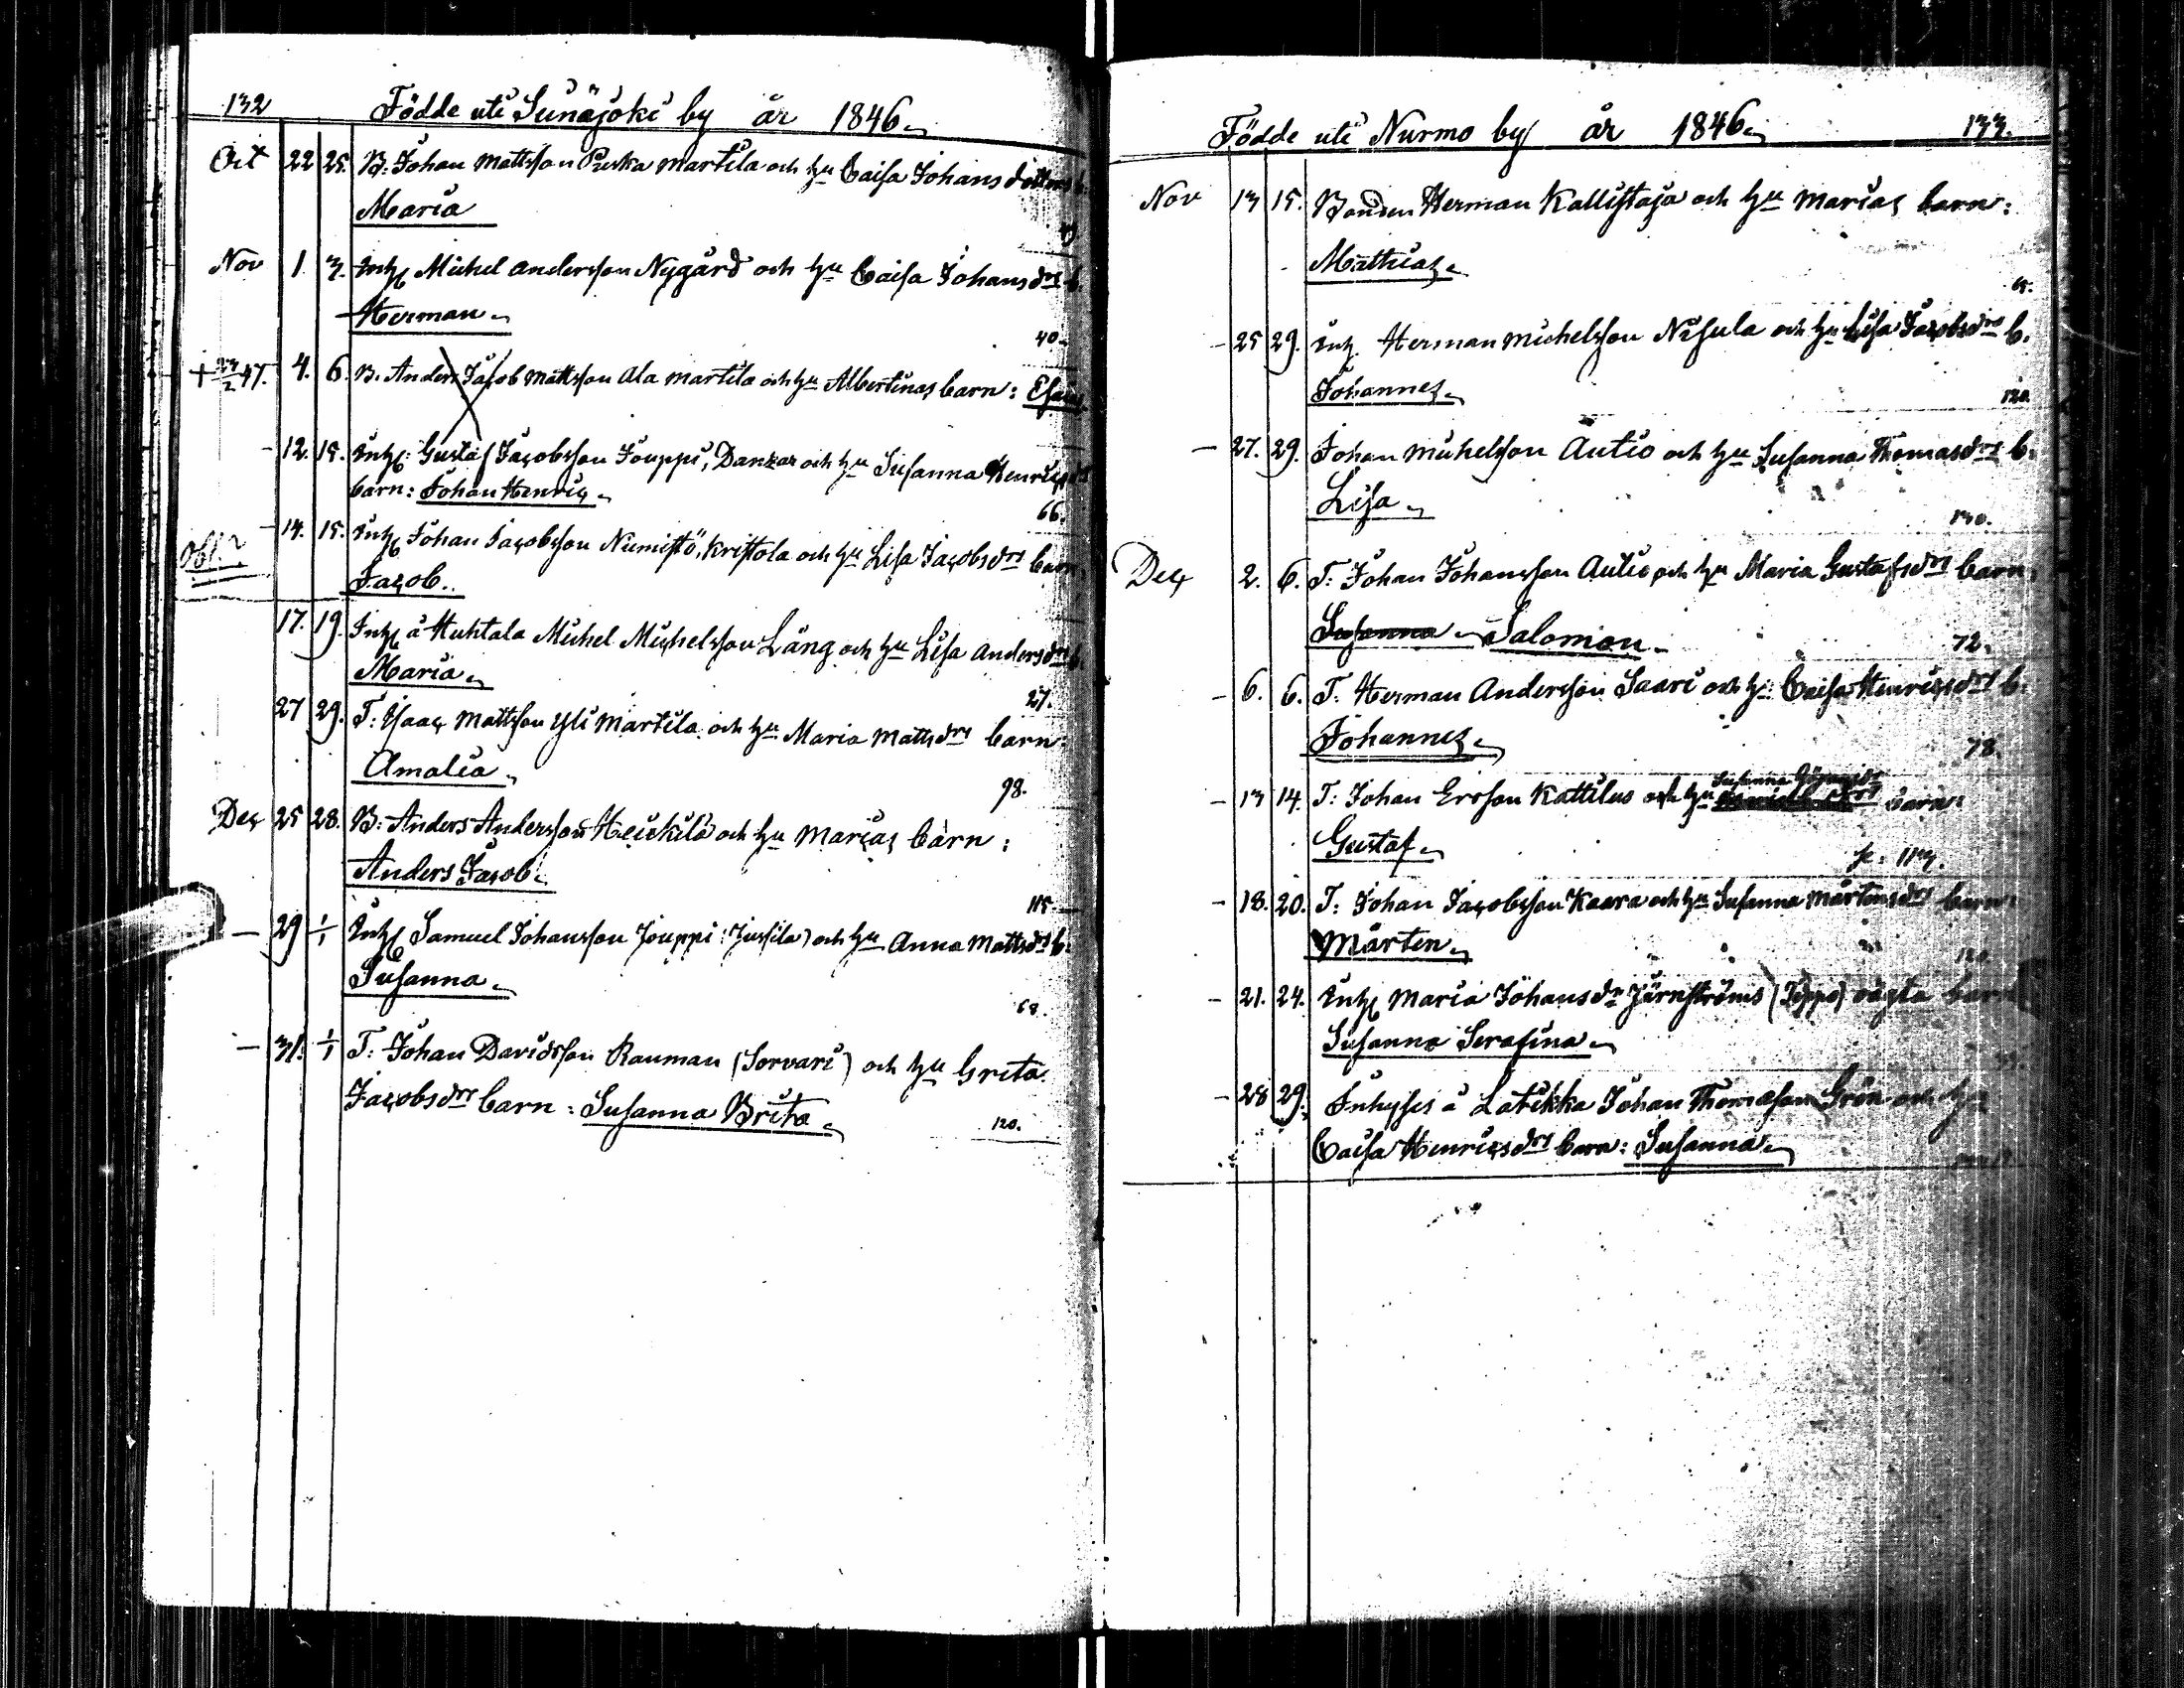 132 Födde uti Seinäjoki by år 1846
Oct 22 25. B: Johan Mattsson Puska Martila och hu Caisa Johans dotters b.
Maria
Nov 1. 3. Inhs Michel Andersson Nygård och hu Caisa Johans drs b.
Herman
40.
+ 23/2 47. 4. 6. B. Anders Jacob Mattsson Ala Martila och hu Albertinas barn: Esaias
- 12. 15. Inhs: Gustaf Jacobsson Jouppi, Danzar och hu Susanna Henricsdrs
barn: Johan Henric
66.
Obs. 2 - 14. 15. Inhs Johan Jacobsson Niemistö, Kristola och hu Lisa Jacobs drs barn
Jacob.
17. 19. Inhs å Huhtala Michel Michelsson Lång och hu Lisa Anders drs b.
Maria
27.
27 29. T: Isaac Mattsson Yli Martila och hu Maria Matts drs barn:
Amalia
98.
Dec 25 28. B: Anders Andersson Heikkilä och hu Marias barn:
Anders Jacob
115.
- 29 1/1 Inhs Samuel Johansson Jouppi (Jussila) och hu Anna Mattsdrs b.
Susanna
68.
- 31. 1/1 T: Johan Davidsson Rauman (Sorvari) och hu Greta
Jacobsdrs barn: Susanna Brita
120.
Födde uti Nurmo by år 1846 133.
Nov 13 15. Bonden Herman Kallistaja och hu Marias barn:
Mathias
65.
- 25 29. Inh. Herman Michelsson Nisula och hu Lisa Jacobsdrs b.
Johannes
120.
- 27. 29. Johan Michelsson Autio och hu Susanna Thomasdrs b.
Lisa
130.
Dec 2. 6. T: Johan Johansson Autio och hu Maria Gustafsdrs barn:
Susanna Salomon
72.
- 6. 6. T. Herman Andersson Saari och hu Caisa Henricsdrs b.
Johannes
78.
Susanna
- 13 14. T: Johan Ersson Kattilus och hu barn:
Gustaf
p: 113.
- 18. 20. T: Johan Jacobsson Kaara och hu Susanna Mårtensdrs barn:
Mårten
120
- 21. 24. Inhs Maria Johansdr Järnströms (Teppo) oägta barn
Susanna Serafina
- 28 29. Inhyses å Latikka Johan Thomasson Grön och hu
Caisa Henricsdrs barn: Susanna